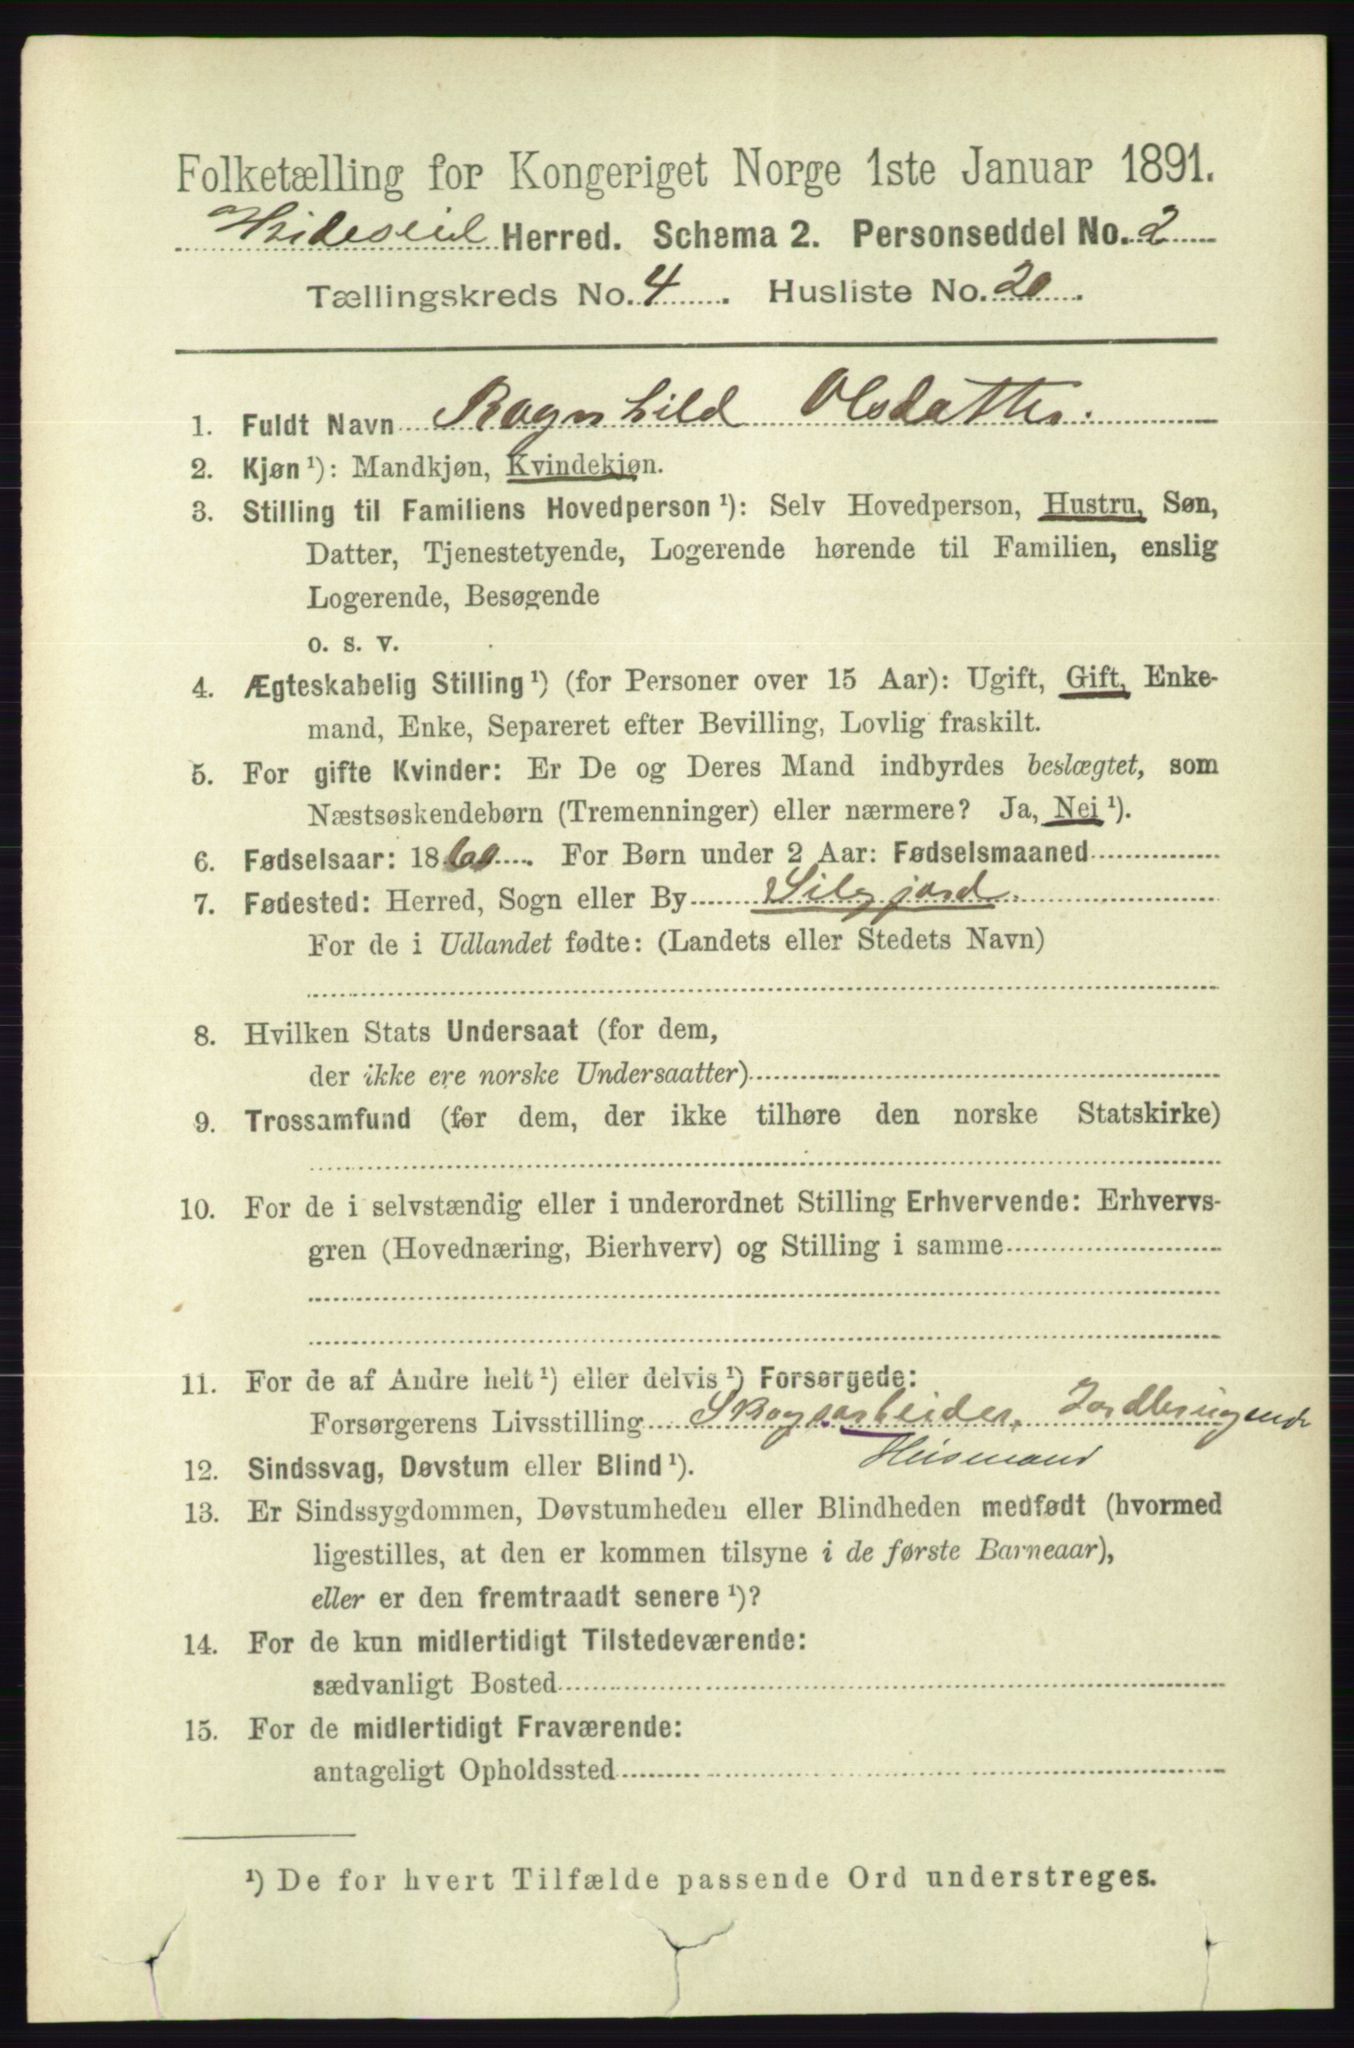 Folketælling for Kongeriget Norge 1ste Januar 1891.
Hvideseid Herred. Schema 2. Personseddel No. 2
Tællingskreds No. 4. Husliste No. 20.
1. Fuldt Navn Ragnhild Olsdatter.
2. Kjøn ¹): Mandkjøn, Kvindekjøn.
3. Stilling til Familiens Hovedperson ¹): Selv Hovedperson, Hustru, Søn,
Datter, Tjenestetyende, Logerende hørende til Familien, enslig
Logerende, Besøgende
o. s. v.
4. Ægteskabelig Stilling ¹) (for Personer over 15 Aar): Ugift, Gift, Enke-
mand, Enke, Separeret efter Bevilling, Lovlig fraskilt.
5. For gifte Kvinder: Er De og Deres Mand indbyrdes beslægtet, som
Næstsøskendebørn (Tremenninger) eller nærmere? Ja, Nei ¹).
6. Fødselsaar: 1860. For Børn under 2 Aar: Fødselsmaaned
7. Fødested: Herred, Sogn eller By Silgjord.
For de i Udlandet fødte: (Landets eller Stedets Navn)
8. Hvilken Stats Undersaat (for dem,
der ikke ere norske Undersaatter)
9. Trossamfund (for dem, der ikke tilhøre den norske Statskirke)
10. For de i selvstændig eller i underordnet Stilling Erhvervende: Erhvervs-
gren (Hovednæring, Bierhverv) og Stilling i samme
11. For de af Andre helt ¹) eller delvis ¹) Forsørgede:
Forsørgerens Livsstilling Skogsarbeider. Jordbrugende
Husmand
12. Sindssvag, Døvstum eller Blind ¹).
13. Er Sindssygdommen, Døvstumheden eller Blindheden medfødt (hvormed
ligestilles, at den er kommen tilsyne i de første Barneaar),
eller er den fremtraadt senere ¹)?
14. For de kun midlertidigt Tilstedeværende:
sædvanligt Bosted
15. For de midlertidigt Fraværende:
antageligt Opholdssted
¹) De for hvert Tilfælde passende Ord understreges.